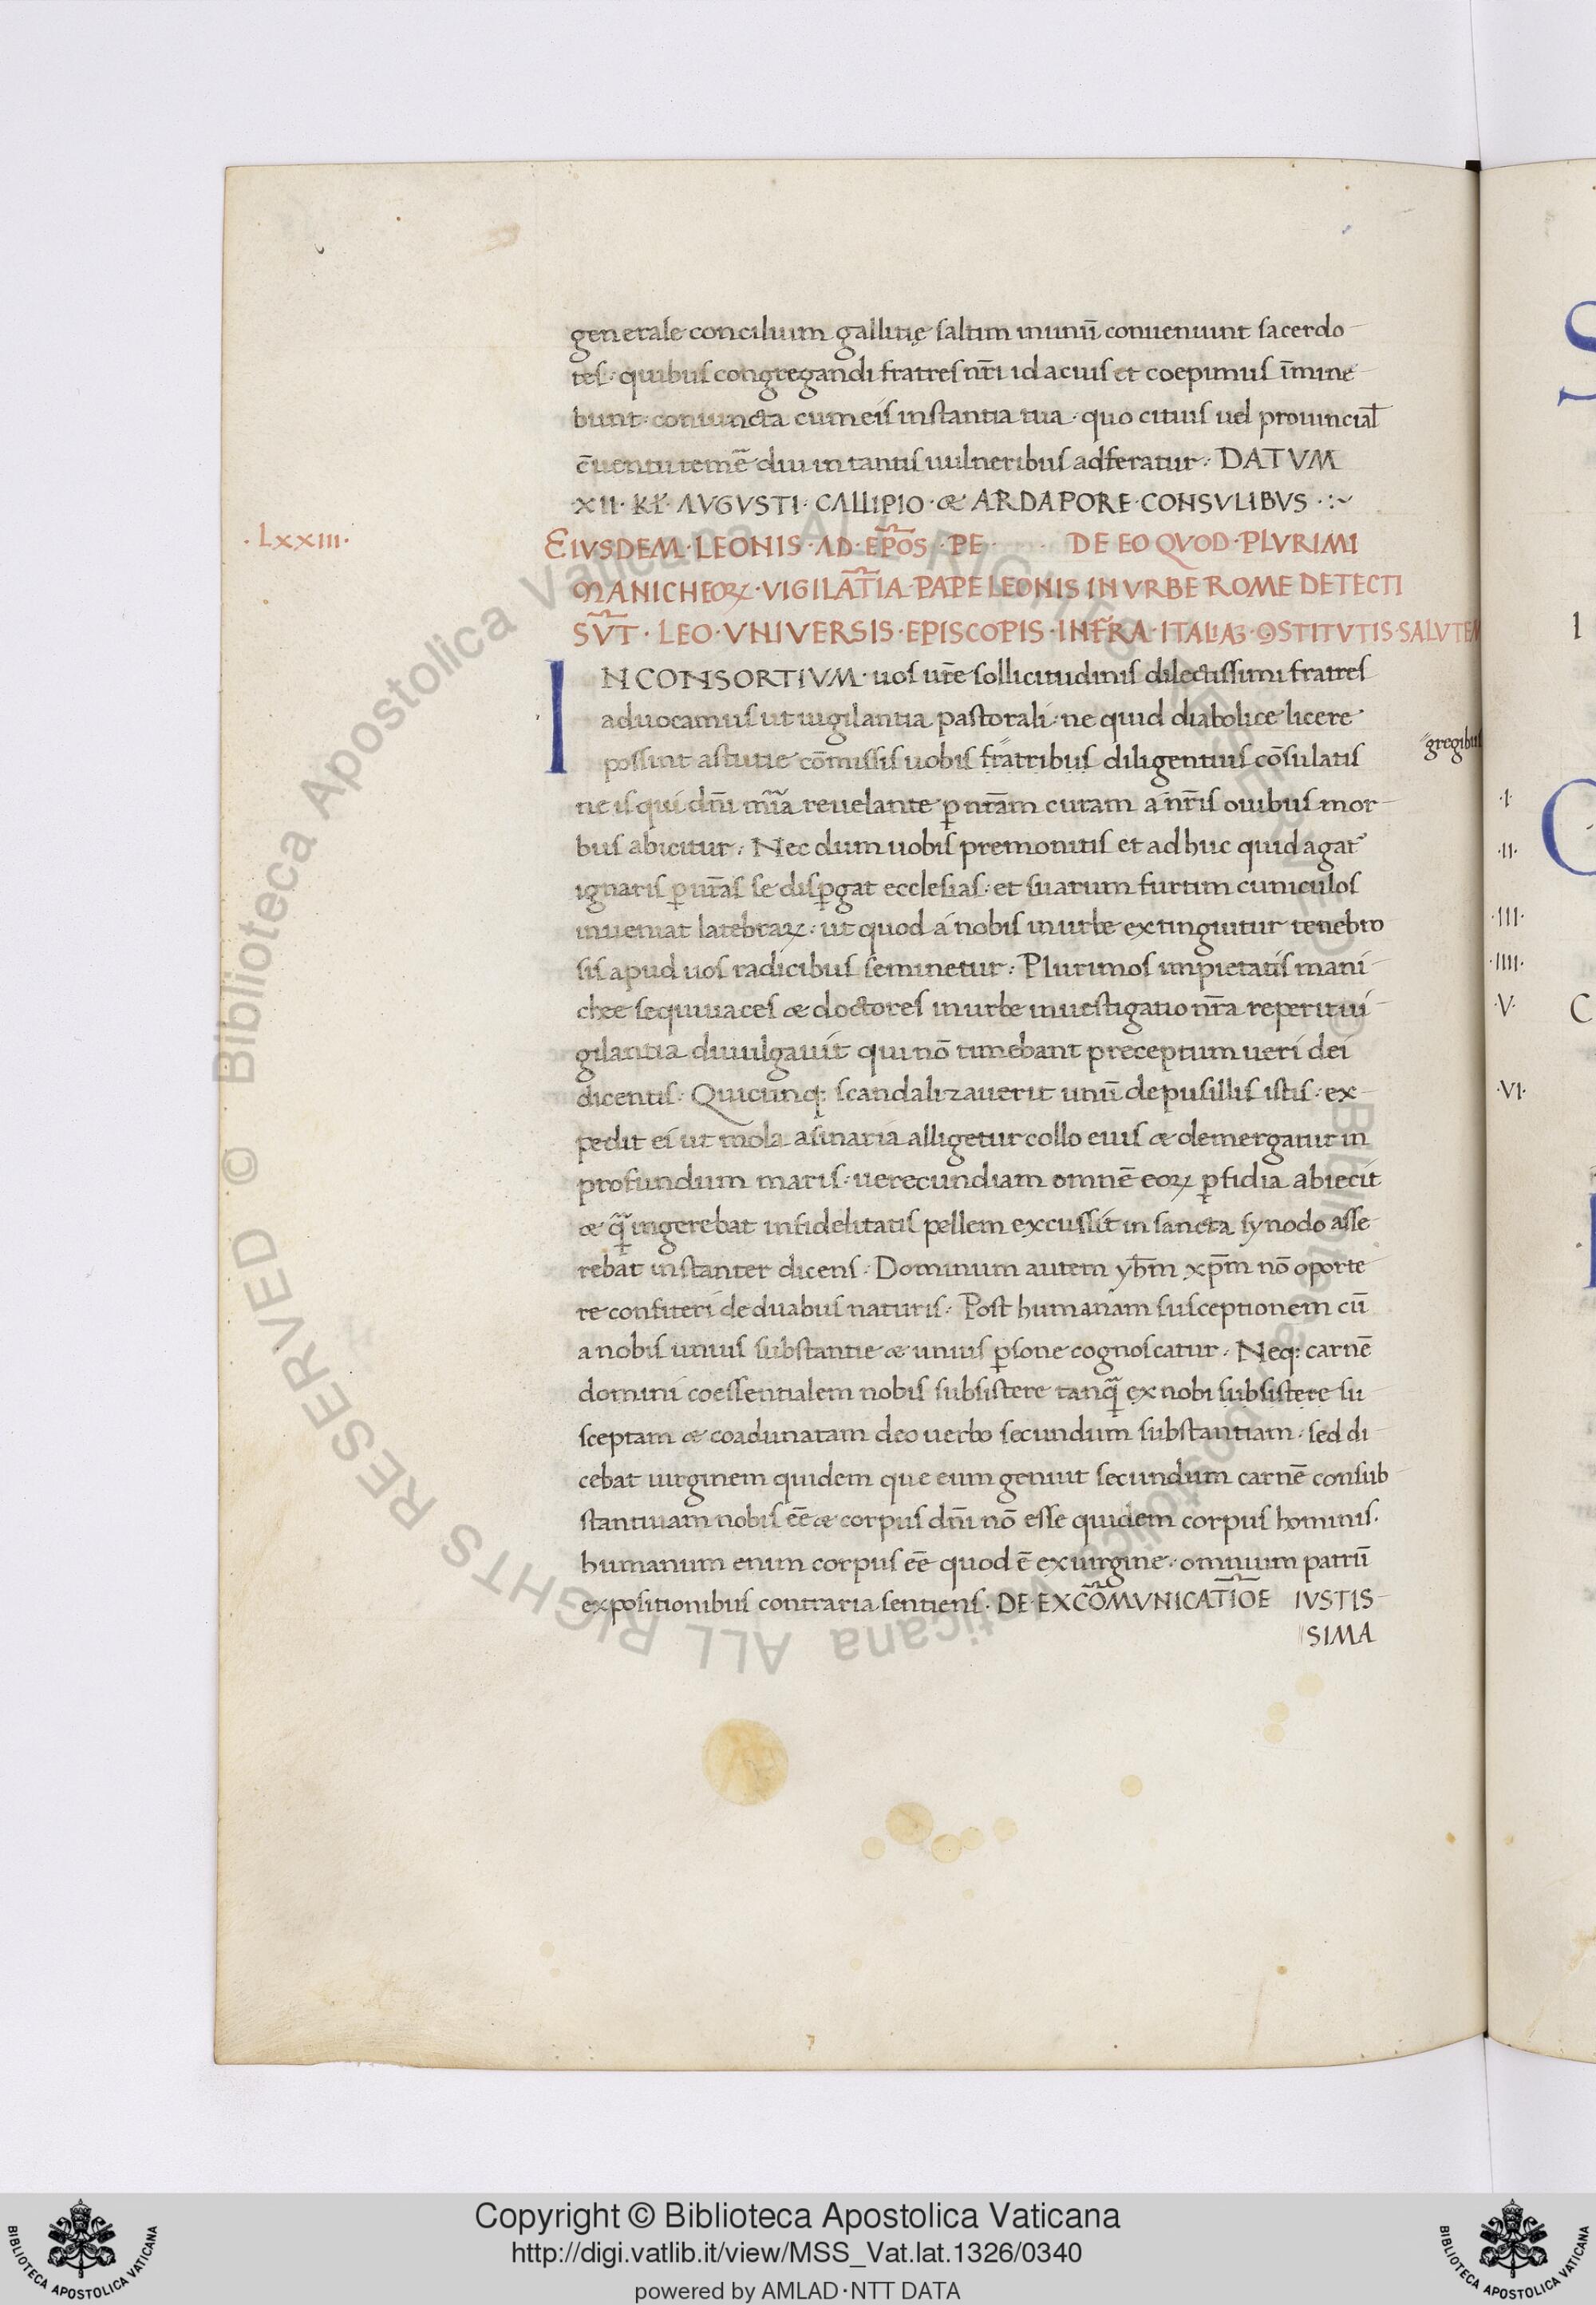 generale concilium gallitię saltim inunū conueniunt sacerdo
tes· quibus congregandi fratres nr̄i id acuis et coepimus īmine
bunt· coniuncta cum eis instantia tua· quo citius uel prouincial̄
c̄uentu remē diu in tantis uulneribus adferatur· DATVM
XII· KL̄· AVGVSTI· CALLIPIO· & ARDAPORE· CONSVLIBVS·
·LXXIII·
EIVSDEM· LEONIS· AD· EP̄OS· PE· DE EO QVOD· PLVRIMI
MANICHEOꝜ· VIGILAT̄IA· PAPE LEONIS IN VRBE ROME DETECTI
SV̄T· LEO· VNIVERSIS· EPISCOPIS· INF̄RA· ITALIA· ꝮSTITVTIS· SALVTEM
IN CONSORTIVM· uos ur̄e sollicitudinis dilectissimi fratres
aduocamus ut uigilantia pastorali· ne quid diabolice licere
possint astutie cōmissis uobis fratribus diligentius cōsulatis
gregibus
ne is qui dn̄i mīa reuelante ꝑ nr̄am curam a nr̄is ouibus mor
bus abicitur· Nec dum uobis premonitis et ad huc quid agat
ignaris ꝑ ur̄as se disꝑgat ecclesias· et suarum furtim cuniculos
inueniat latebraꝝ· ut quod a nobis in urbe extinguitur tenebro
sis apud uos radicibus seminetur· Plurimos impietatis mani
chee sequuaces & doctores in urbe inuestigatio nr̄a reperit ui
gilantia diuulgauit qui nō timebant preceptum ueri dei
dicentis· Quicunq; scandalizauerit unū de pusillis istis· ex
pedit ei ut mola asinaria alligetur collo eius & demergatur in
profundum maris· uerecundiam omnē eoꝝ ꝑfidia abiecit
& q̄ ingerebat infidelitatis pellem excussit in sancta synodo asse
rebat instanter dicens· Dominum autem yh̄m xp̄m nō oporte
re confiteri de duabus naturis· Post humanam susceptionem cū
a nobis unius substantie & unius ꝑsone cognoscatur· Neq; carnē
domini coessentialem nobis subsistere tanq̄ ex nobi subsistere su
sceptam & coadunatam deo uerbo secundum substantiam· sed di
cebat uirginem quidem que eum genuit secundum carnē consub
stantiuam nobis ēē & corpus dn̄i nō esse quidem corpus hominis·
humanum enim corpus ēē quod ē ex uirgine· omnium patrū
expositionibus contraria sentiens· DE EXCŌMVNICAT̄IOE IVSTIS
SIMA
·I·
·II·
·III·
·IIII·
·V·
·VI·
Copyright © Biblioteca Apostolica Vaticana
http://digi.vatlib.it/view/MSS_Vat.lat.1326/0340
powered by AMLAD·NTT DATA
BIBLIOTECA APOSTOLICA VATICANA
BIBLIOTECA APOSTOLICA VATICANA
© Biblioteca Apostolica Vaticana ALL RIGHTS RESERVED
© Biblioteca Apostolica Vaticana ALL RIGHTS RESERVED